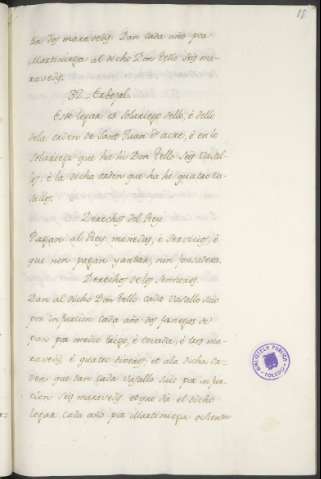 15
En dos maravedis. Dan cada año por
Martiniega al dicho Don Tello seis ma-
ravedis.
Este logar es solariego dello, è dello
dela orden de Sant Juan de acre, è en lo
solariego que ha hi Don Tello seis vasal-
los, è la dicha orden que ha hi quatro va-
sallos.
Derechos del Rey
Pagan al Rey monedas, è servicios, è
que non pagan yantar, nin fonsadera.
Derechos de los Señores.
Dan al dicho Don Tello cada vasallo suio
por infurcion cada año dos fanegas de
pan por medio trigo, è cevada, è tres ma-
ravedis, è quatro dineros, et ala dicha or-
den que dan cada vasallo suio por infur-
cion seis maravedis, et que dà el dicho
logar cada año por Martiniega ochenta
BIBLIOTECA PUBLICA
TOLEDO